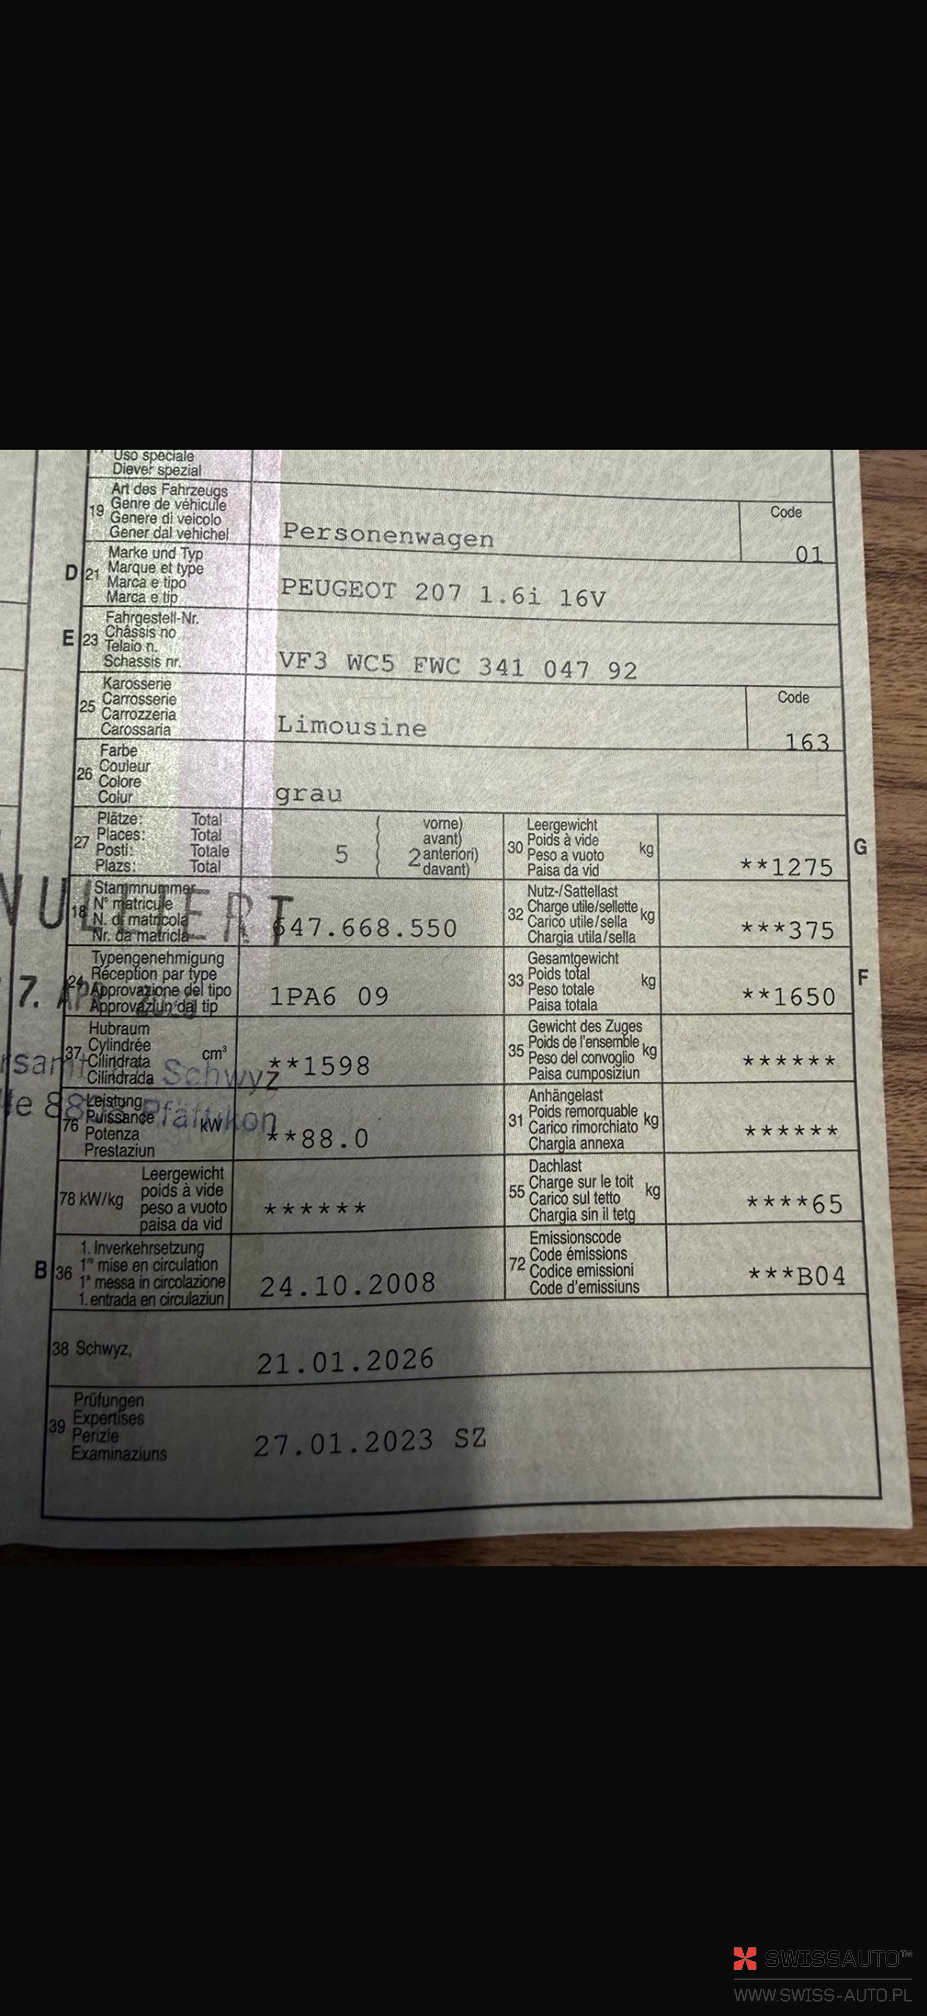 Uso speciale
Diever spezial
19 Art des Fahrzeugs
Genre de véhicule
Genere di veicolo
Gener dal vehichel
Personenwagen
Code
01
D 21 Marke und Typ
Marque et type
Marca e tipo
Marca e tip
PEUGEOT 207 1.6i 16V
E 23 Fahrgestell-Nr.
Châssis no
Telaio n.
Schassis nr.
VF3 WC5 FWC 341 047 92
25 Karosserie
Carrosserie
Carrozzeria
Carossaria
Limousine
Code
163
26 Farbe
Couleur
Colore
Colur
grau
27 Plätze: Total
Places: Total
Posti: Totale
Plazs: Total
5
2
vorne)
avant)
anteriori)
davant)
30 Leergewicht
Poids à vide
Peso a vuoto
Paisa da vid
kg
**1275
G
18 Stammnummer
N° matricule
N. di matricola
Nr. da matricla
647.668.550
32 Nutz-/Sattellast
Charge utile/sellette
Carico utile/sella
Chargia utila/sella
kg
***375
24 Typengenehmigung
Réception par type
Approvazione del tipo
Approvaziun dal tip
1PA6 09
33 Gesamtgewicht
Poids total
Peso totale
Paisa totala
kg
**1650
F
37 Hubraum
Cylindrée
Cilindrata
Cilindrada
cm³
**1598
35 Gewicht des Zuges
Poids de l'ensemble
Peso del convoglio
Paisa cumposiziun
kg
******
76 Leistung
Puissance
Potenza
Prestaziun
kW
**88.0
31 Anhängelast
Poids remorquable
Carico rimorchiato
Chargia annexa
kg
******
78 kW/kg
Leergewicht
poids à vide
peso a vuoto
paisa da vid
******
55 Dachlast
Charge sur le toit
Carico sul tetto
Chargia sin il tetg
kg
****65
B 36 1. Inverkehrsetzung
1re mise en circulation
1a messa in circolazione
1. entrada en circulaziun
24.10.2008
72 Emissionscode
Code émissions
Codice emissioni
Code d'emissiuns
***B04
38 Schwyz,
21.01.2026
39 Prüfungen
Expertises
Perizie
Examinaziuns
27.01.2023 SZ
NULLIERT
7. APR.
Schwyz
Pfäffikon
SWISSAUTO™
WWW.SWISS-AUTO.PL